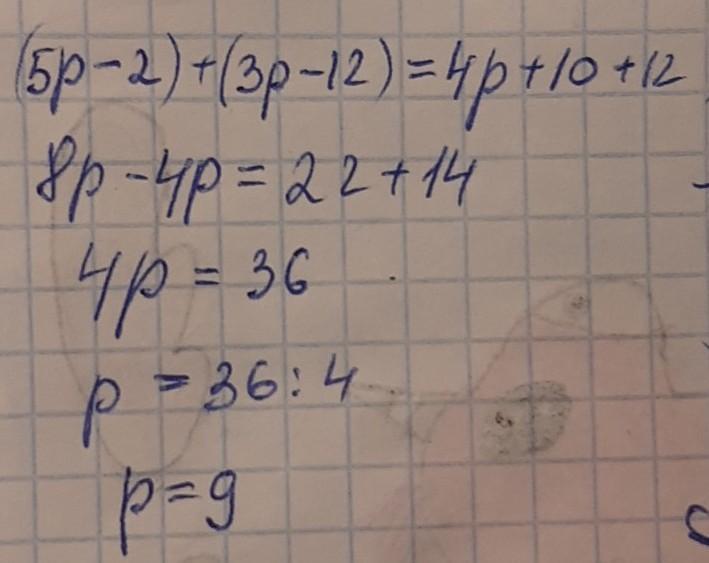 (5p-2)+(3p-12)=4p+10+12
8p-4p=22+14
4p=36
p=36:4
p=9